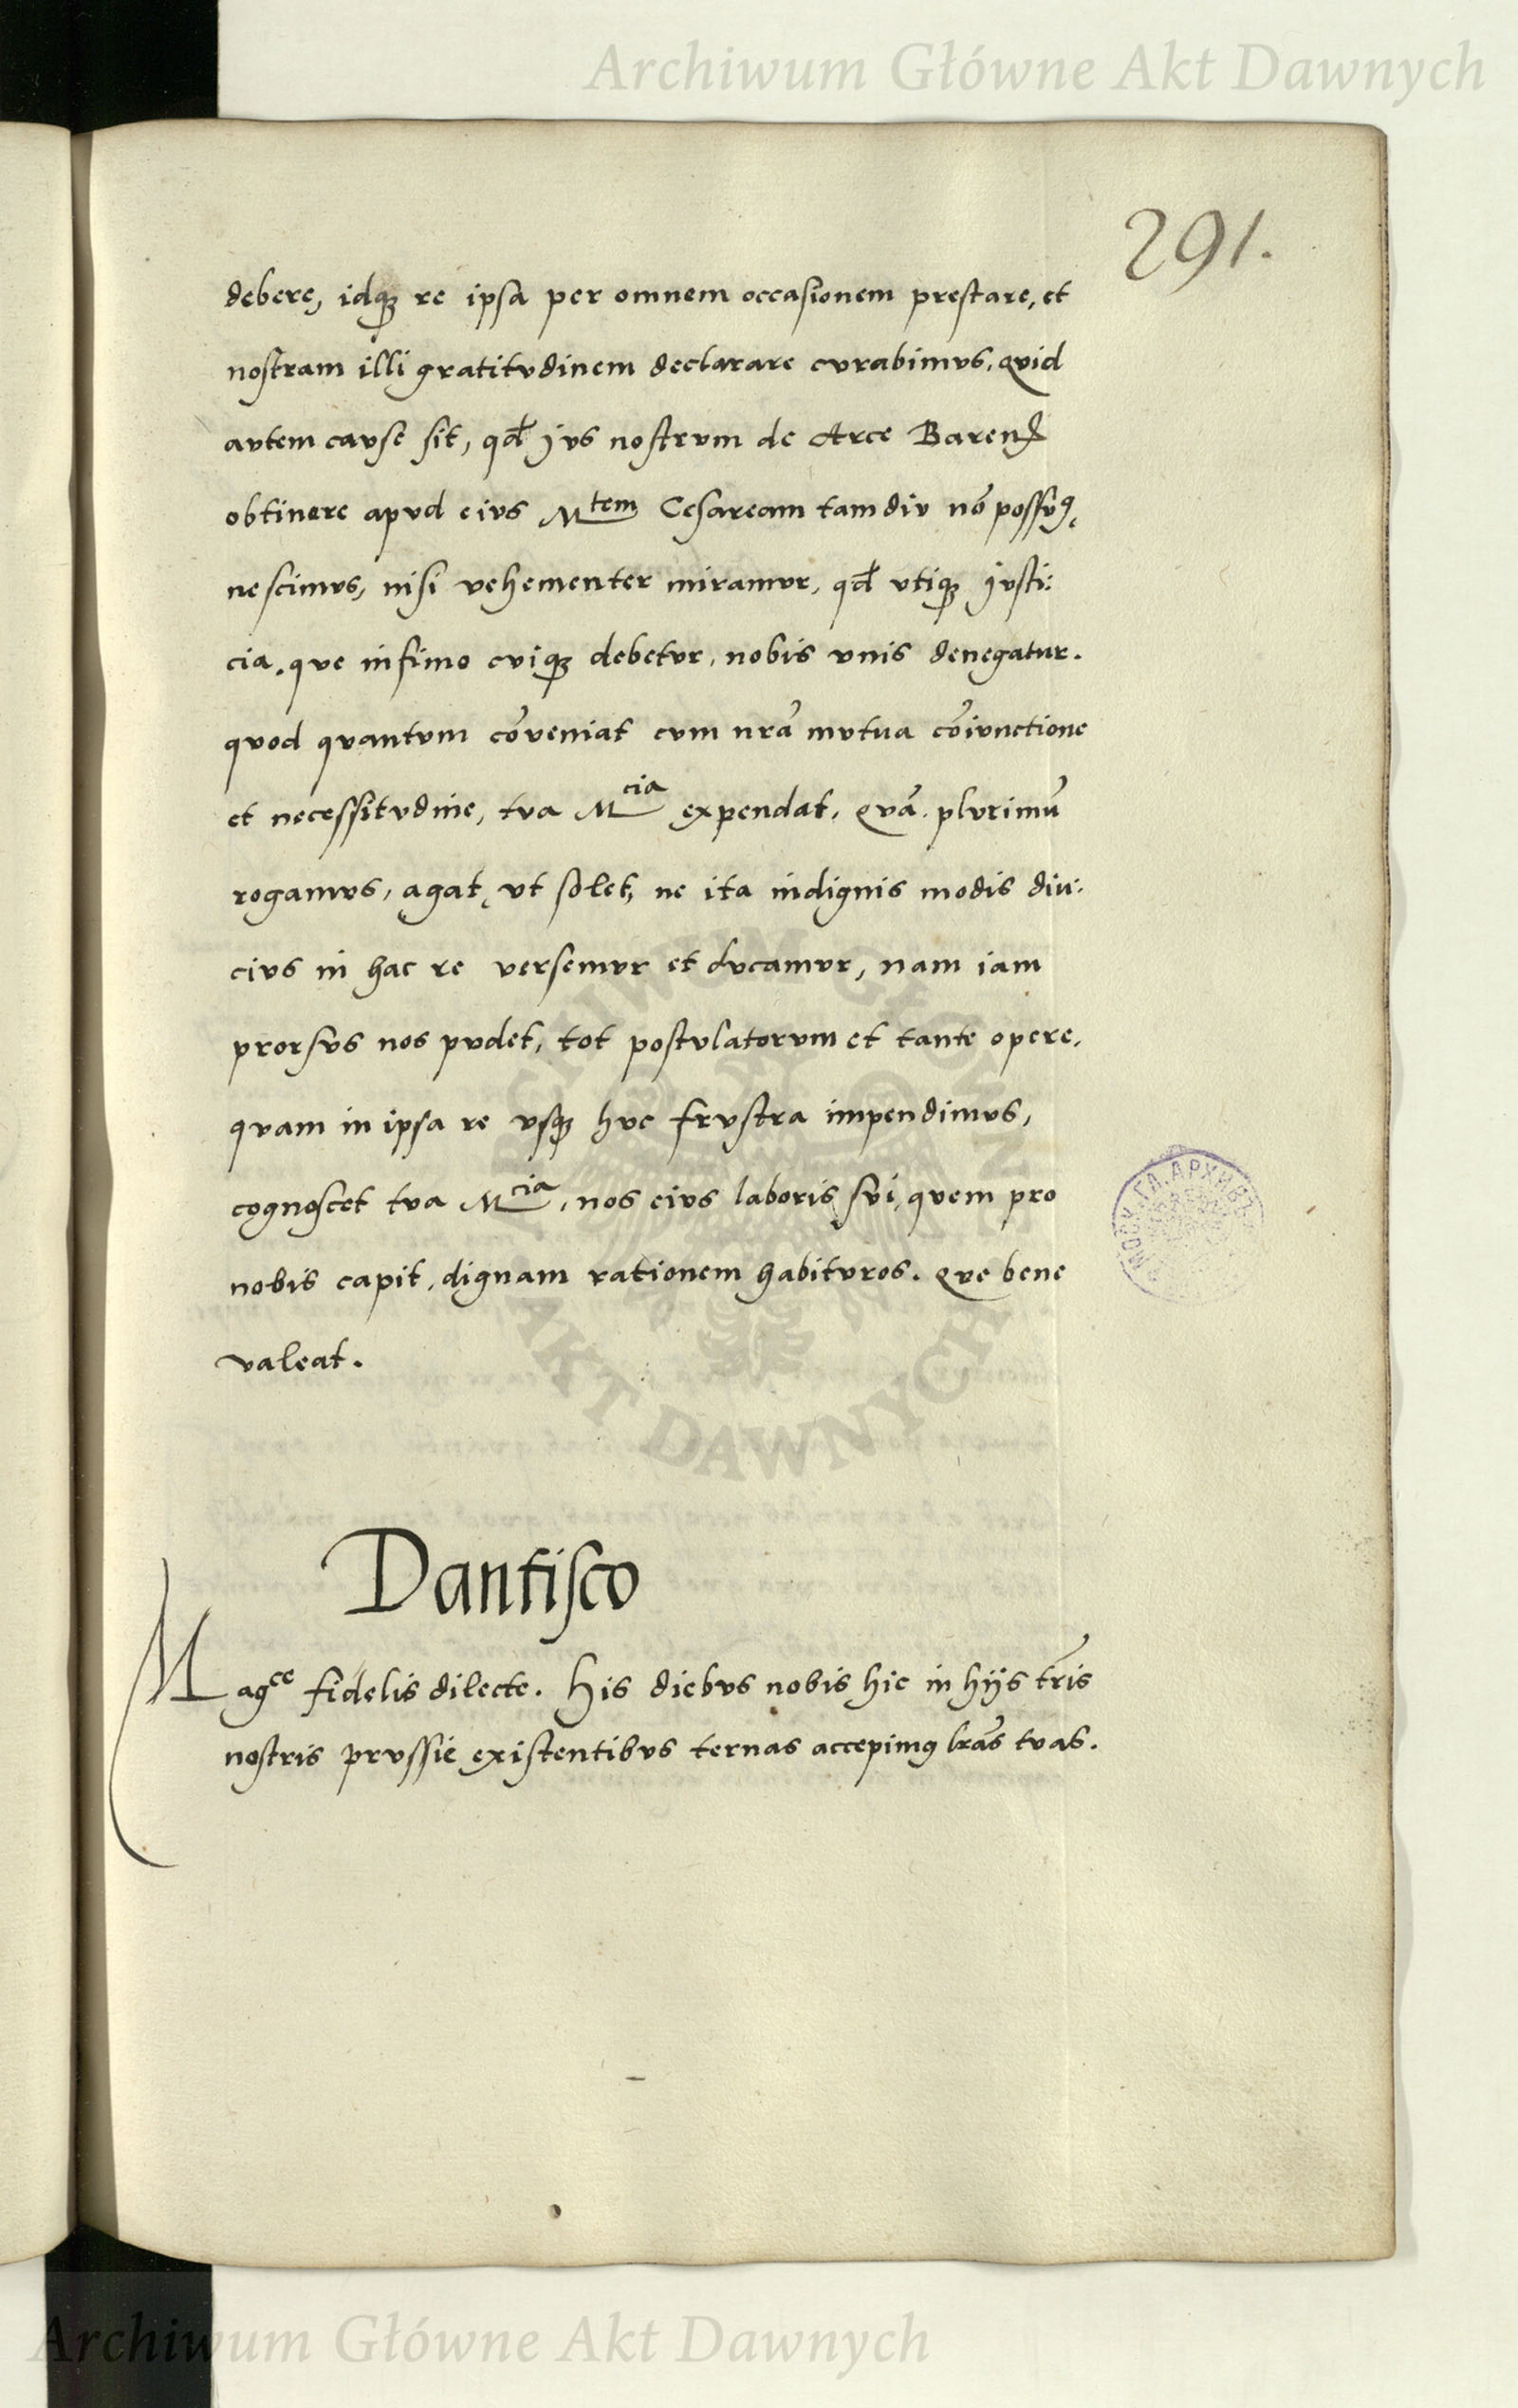 Archiwum Główne Akt Dawnych
291.
debere, idqꝫ re ipsa per omnem occasionem prestare, et
nostram illi gratitvdinem declarare cvrabimvs, qvid
avtem cavse sit, qđ jvs nostrvm de Arce Barenꝭ
obtinere apvd eivs Mtem Cesaream tamdiv nō possvꝰ,
nescimvs, nisi vehementer miramvr, qđ vtiqꝫ jvsti:
cia, qve infimo cviqꝫ debetvr, nobis vnis denegatur.
qvod qvantvm cōveniat cvm nrā mvtua cōivnctione
et necessitvdine, tva Mcia expendat, qvā plvrimū
rogamvs, agat, vt solet, ne ita indignis modis diu:
civs in hac re versemvr et dvcamvr, nam iam
prorsvs nos pvdet, tot postvlatorvm et tante opere,
qvam in ipsa re vsqꝫ hvc frvstra impendimvs,
cognoscet tva Mcia, nos eivs laboris svi, qvem pro
nobis capit, dignam rationem habitvros. Qve bene
valeat.
Dantisco
Magce fidelis dilecte. His diebvs nobis hic in hijs tr̄is
nostris prvssie existentibvs ternas accepimꝰ lrās tvas.
ARCHIWUM GŁÓWNE
AKT DAWNYCH
Archiwum Główne Akt Dawnych